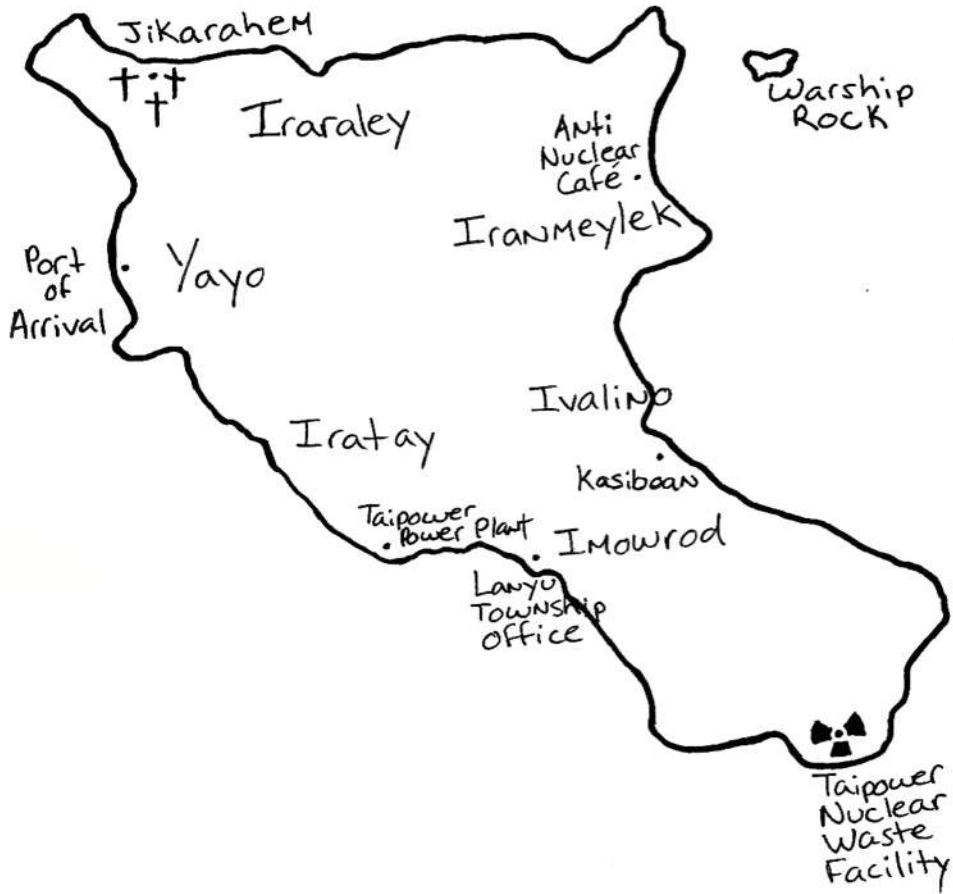 Jikarahem
Iraraley
Warship
Rock
Anti
Nuclear
Café
Iranmeylek
Port
of
Arrival
Yayo
Ivalino
Iratay
Kasiboan
Taipower
Power Plant
Imowrod
Lanyu
Township
Office
Taipower
Nuclear
Waste
Facility